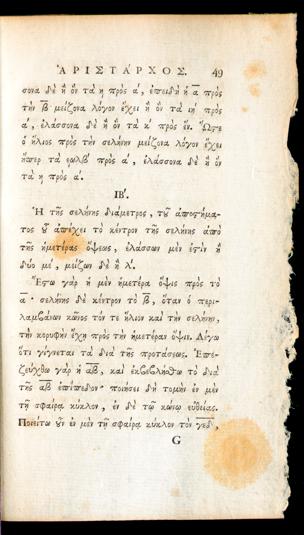 ἈΡΙΣΤΑΡΧΟΣ. 49
σονα δὲ ἢ ὃν τὰ η πρὸς α΄, ἐπειδὴ ἡ α πρὸς
τὴν β μείζονα λόγον ἔχει ἢ ὃν τὰ ιη΄ πρὸς
α΄, ἐλάσσονα δὲ ἢ ὃν τὰ κ΄ πρὸς ἕν. Ὥστε
ὁ ἥλιος πρὸς τὴν σελήνην μείζονα λόγον ἔχει
ἤπερ τὰ εωλβ΄ πρὸς α΄, ἐλάσσονα δὲ ἢ ὃν
τὰ η πρὸς α΄.
ΙΒ΄.
Ἡ τῆς σελήνης διάμετρος, τοῦ ἀποστήμα-
τος οὗ ἀπέχει τὸ κέντρον τῆς σελήνης ἀπὸ
τῆς ἡμετέρας ὄψεως, ἐλάσσων μέν ἐστιν ἢ
δύο με΄, μείζων δὲ ἢ λ΄.
Ἔστω γὰρ ἡ μὲν ἡμετέρα ὄψις πρὸς τὸ
α· σελήνης δὲ κέντρον τὸ β, ὅταν ὁ περι-
λαμβάνων κῶνος τόν τε ἥλιον καὶ τὴν σελήνην,
τὴν κορυφὴν ἔχῃ πρὸς τὴν ἡμετέραν ὄψιν. Λέγω
ὅτι γίγνεται τὰ διὰ τῆς προτάσεως. Ἐπε-
ζεύχθω γὰρ ἡ αβ, καὶ ἐκβεβλήσθω τὸ διὰ
τῆς αβ ἐπίπεδον· ποιήσει δὴ τομὴν ἐν μὲν
τῇ σφαίρᾳ κύκλον, ἐν δὲ τῷ κώνῳ εὐθείας.
Ποιείτω οὖν ἐν μὲν τῇ σφαίρᾳ κύκλον τὸν γεδ,
G